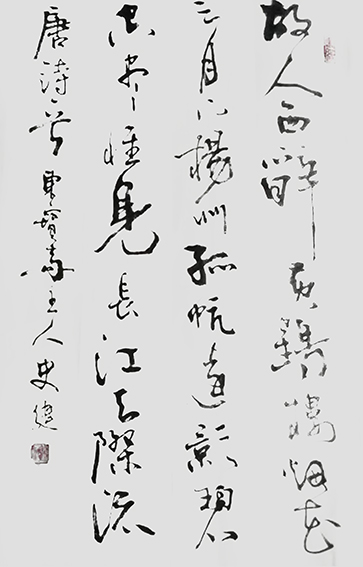 故人西辭黄鶴樓烟花
三月下揚州孤帆遠影碧
空盡惟見長江天際流
唐詩一首 主人史